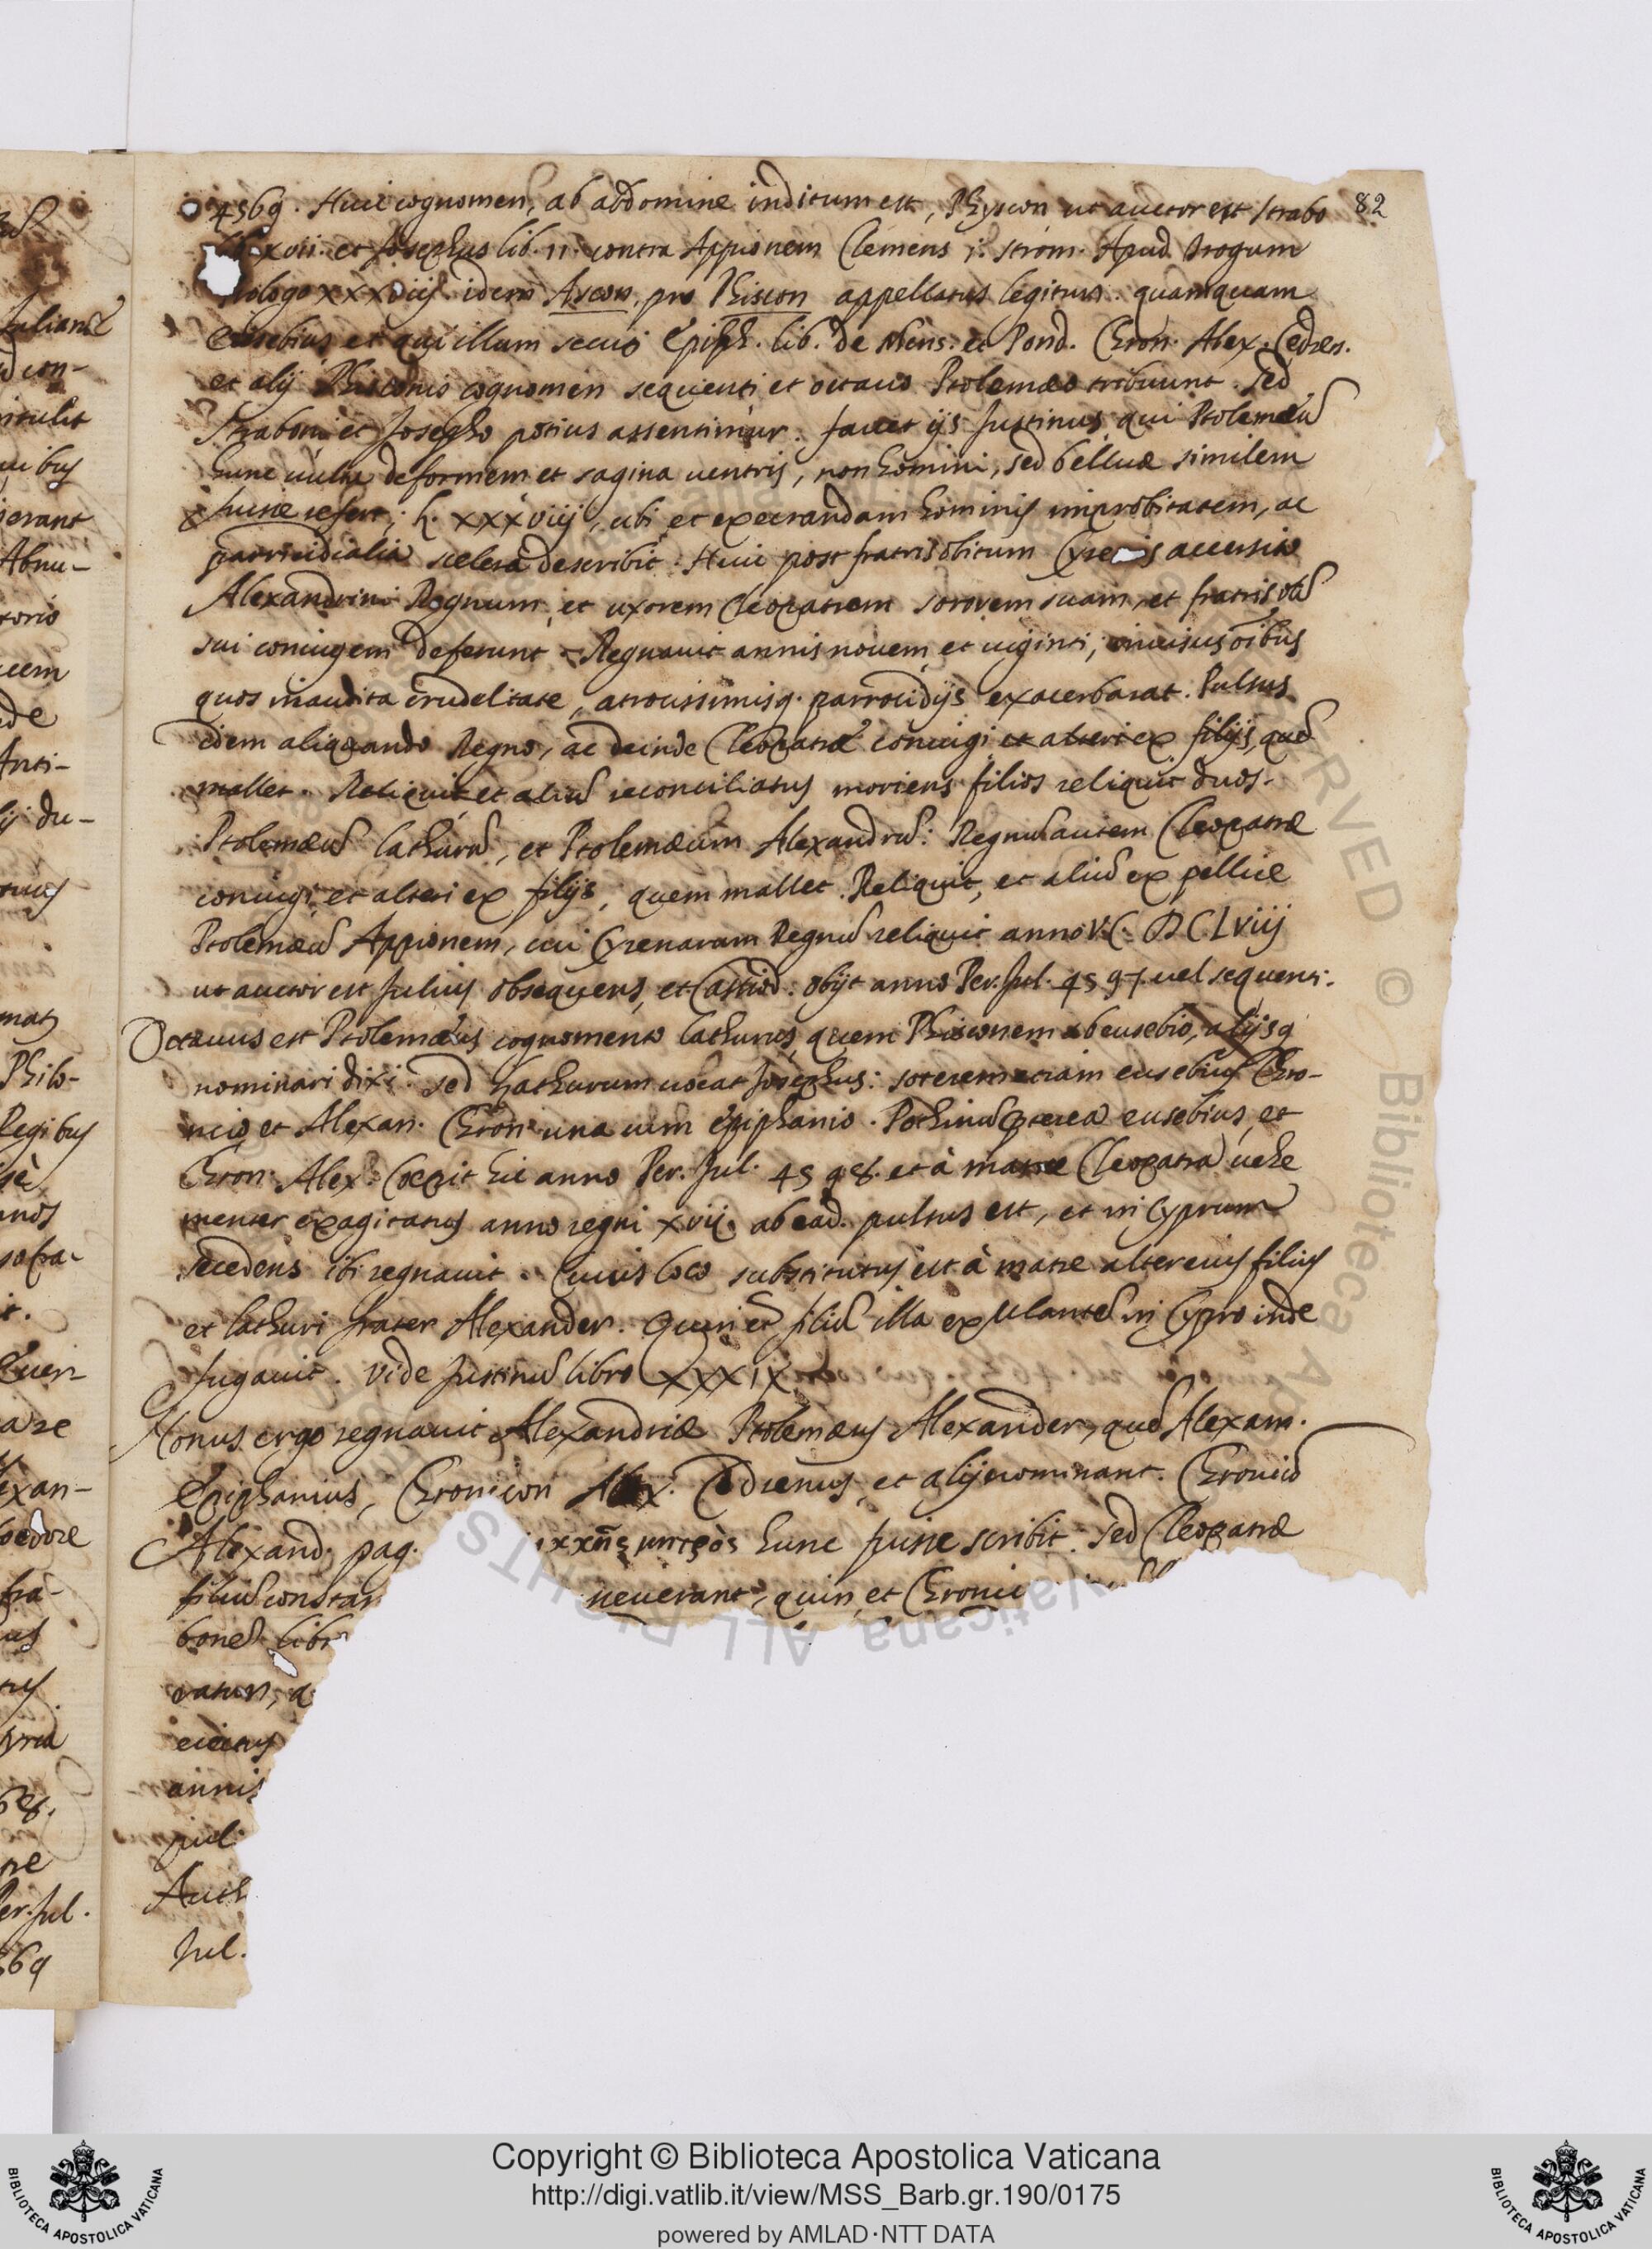 82
4569. Huic cognomen, ab abdomine inditum est, Physcon ut auctor est Strabo
xvii. et Josephus lib. 11. contra Appionem Clemens i. strom. Apud Trogum
ologo xxxviij. idem Ascon, pro Phiscon appellatus legitur. quamquam
Eusebius et qui illum secuti Epiph. lib. de Mens. et Pond. Chron. Alex. Cedren.
et alij Phisconis cognomen sequenti et octavo Ptolemæo tribuunt. Sed
Straboni et Josepho potius assentimur. favet ijs Justinus qui Ptolemæū
hunc vultu deformem et sagina ventris, non homini, sed belluæ similem
fuisse refert; l. xxxviij, ubi et execrandam hominis improbitatem, ac
parricidialia scelera describit. Huic post fratris obitum Cyrenis accersito
Alexandrini Regnum, et uxorem Cleopatrem sororem suam, et fratris
sui coniugem deferunt. Regnavit annis novem et viginti, invisus oibus
quos inaudita crudelitate, atrocissimisq. parricidijs exacerbarat. Pulsus
idem aliquando Regno, ac deinde Cleopatræ coniugi et alteri ex filijs, quē
mallet. Reliquit et aliū reconciliatus moriens filios reliquit duos.
Ptolemæū Lathurū, et Ptolemæum Alexandrū. Regnū autem Cleopatræ
coniugi, et alteri ex filijs, quem mallet. Reliquit, et aliū ex pellice
Ptolemæū Appionem, cui Cyrenarum Regnū reliquit anno V.C. DCLviij
ut auctor est Julius Obsequens, et Cassiod. obijt anno Per. Jul. 4597. vel sequenti.
Octavus est Ptolemæus cognomento Lathurus, quem Phisconem ab eusebio, alijsq
nominari dixi. Sed Lathurum vocat Josephus: soterem etiam eusebius Chro-
nico et Alexan. Chron. una cum Epiphanio. Pothinū pterea eusebius, et
Chron. Alex. Coepit hic anno Per. Jul. 4598. et à matre Cleopatra vehe
menter exagitatus anno regni xvij. ab ead. pulsus est, et in Cyprum
secedens ibi regnavit. Cuius loco substitutus est à matre alter eius filius
et Lathuri frater Alexander. Quin et filiū illa exulantē in Cypro inde
fugavit. Vide Justinū libro xxxix.
Nonus ergo regnavit Alexandriæ Ptolemæus Alexander, quē Alexam.
Epiphanius, Chronicon Alex. Cedrenus, et alij nominant. Chronicō
Alexand. pag. ικκῆς μητρὸς hunc fuisse scribit. Sed Cleopatræ
filiū constan neverant, quin et Chronic
bonē libr
ratur, q
eiectus
annis
jul.
Auth
Jul.
Copyright © Biblioteca Apostolica Vaticana
http://digi.vatlib.it/view/MSS_Barb.gr.190/0175
powered by AMLAD·NTT DATA
BIBLIOTECA APOSTOLICA VATICANA
BIBLIOTECA APOSTOLICA VATICANA